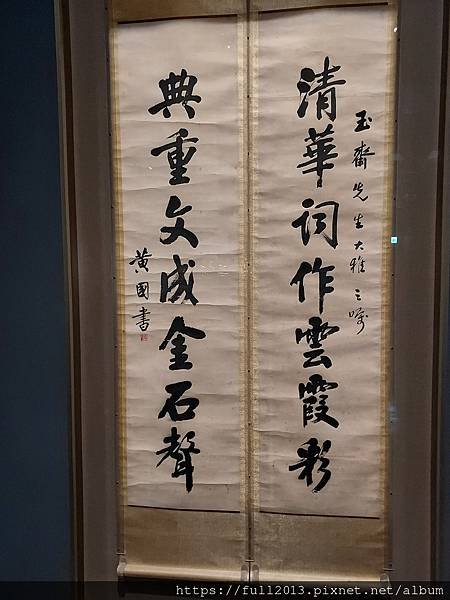 玉齋先生大雅之嘱
清華詞作雲霞彩
典重文成金石聲
黃國書
https://full2013.pixnet.net/album